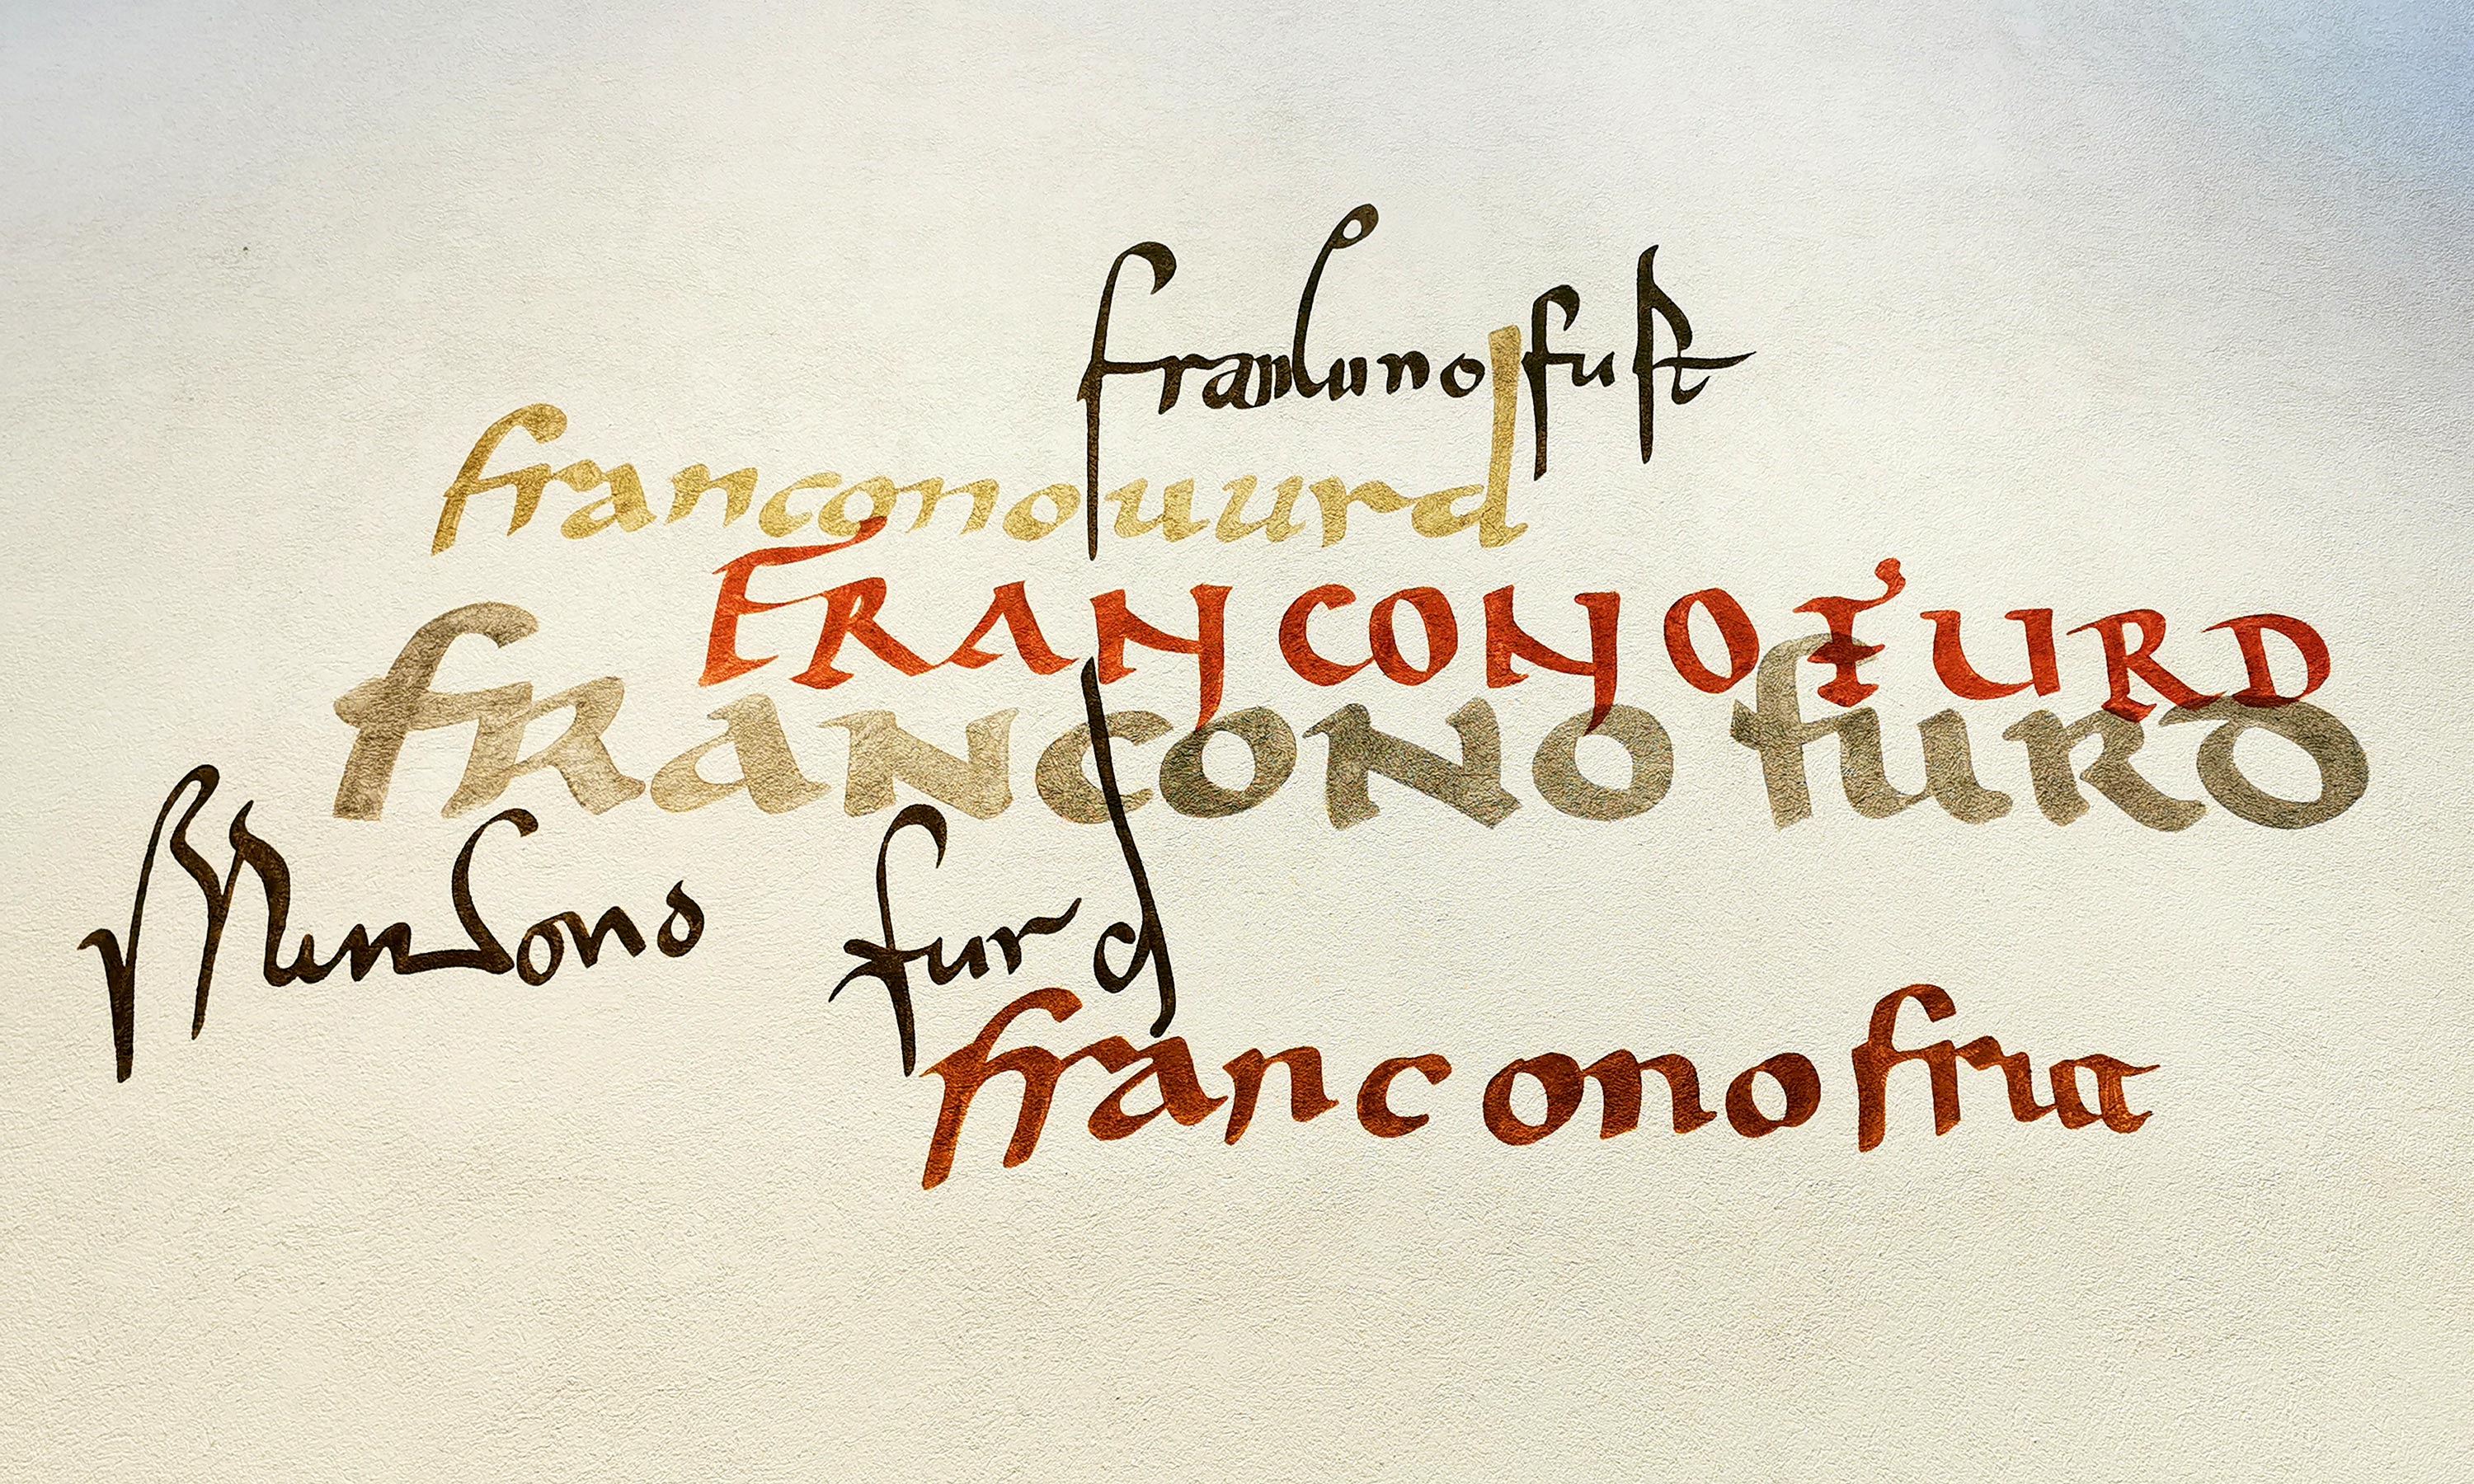 franconofurt
franconouurd
FRANCONOFURD
FRANCONO FURD
franconofurd
franconofrut